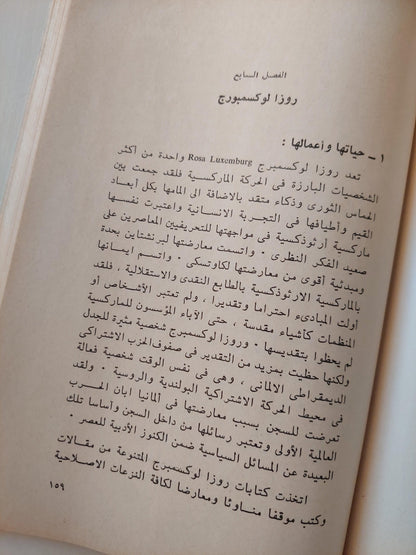 الفصل السابع
روزا لوكسمبورج
١ ـ حياتها وأعمالها :
تعد روزا لوكسمبرج Rosa Luxemburg واحدة من أكثر
الشخصيات البارزة فى الحركة الماركسية فلقد جمعت بين
الحماس الثورى وذكاء متقد بالاضافة الى المامها بكل أبعاد
القيم وأطيافها فى التجربة الانسانية واعتبرت نفسها
ماركسية أرثوذكسية فى مواجهتها للتحريفيين المعاصرين على
صعيد الفكر النظرى ٠ واتسمت معارضتها لبرنشتاين بحدة
ومبدئية أقوى من معارضتها لكاوتسكى ٠ واتسم ايمانها
بالماركسية الارثوذكسية بالطابع النقدى والاستقلالية ، فلقد
أولت المبادىء احتراما وتقديرا ، ولم تعتبر الأشخاص أو
المنظمات كأشياء مقدسة ، حتى الآباء المؤسسون للماركسية
لم يحظوا بتقديسها ٠ وروزا لوكسمبرج شخصية مثيرة للجدل
ولكنها حظيت بمزيد من التقدير فى صفوف الحزب الاشتراكى
الديمقراطى الالمانى ، وهى فى نفس الوقت شخصية فعالة
فى محيط الحركة الاشتراكية البولندية والروسية ٠ ولقد
تعرضت للسجن بسبب معارضتها فى ألمانيا ابان الحرب
العالمية الأولى وتعتبر رسائلها من داخل السجن وأساسا تلك
البعيدة عن المسائل السياسية ضمن الكنوز الأدبية للعصر ٠
اتخذت كتابات روزا لوكسمبرج المتنوعة من مقالات
وكتب موقفا مناوئا ومعارضا لكافة النزعات الاصلاحية
١٥٩